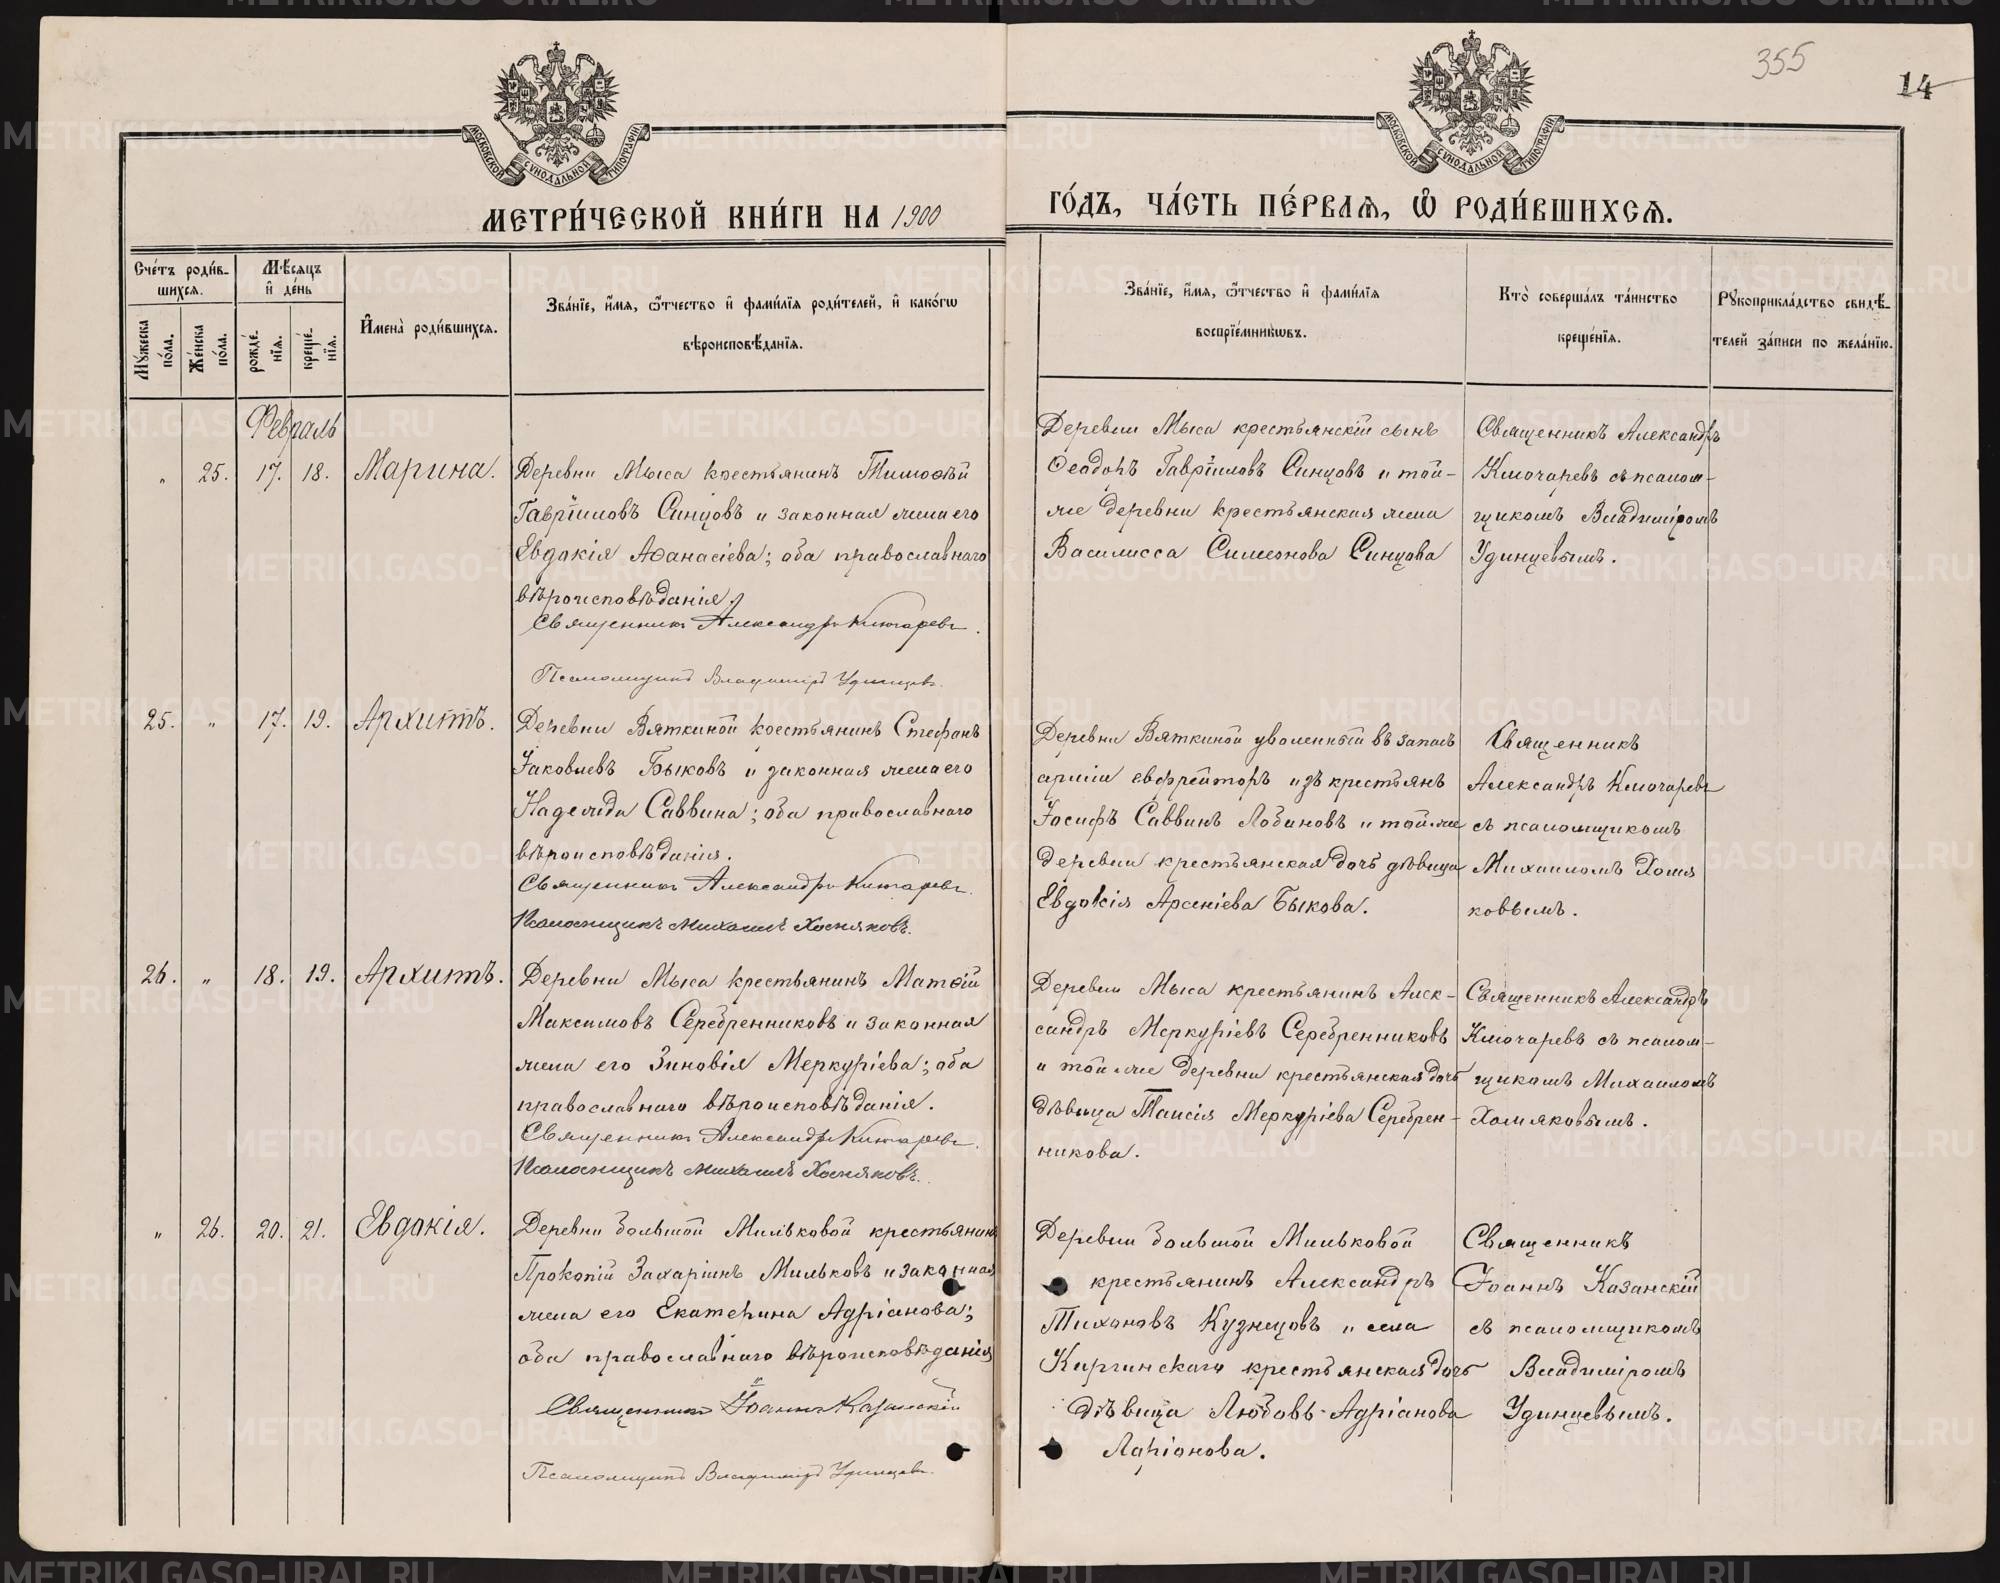 355
14
МОСКОВСКОЙ СУНОДАЛЬНОЙ ТИПОГРАФІИ
МОСКОВСКОЙ СУНОДАЛЬНОЙ ТИПОГРАФІИ
МЕТРИ́ЧЕСКОЙ КНИ́ГИ НА 1900
ГО́ДЪ, ЧА́СТЬ ПЕ́РВАѦ, Ѡ҆ РОДИ́ВШИХСѦ.
Сче́тъ роди́в-
шихсѧ.
Мѣ́сѧцъ
и҆ де́нь
Мꙋ́жеска по́ла.
Же́нска по́ла.
рожде́-
нїѧ.
креще́-
нїѧ.
И҆мена̀ роди́вшихсѧ.
Зва́нїе, и҆́мѧ, ѻ҆́тчество и҆ фами́лїѧ роди́телей, и҆ како́гѡ
вѣроисповѣ́данїѧ.
Зва́нїе, и҆́мѧ, ѻ҆́тчество и҆ фами́лїѧ
воспрїе́мникѡвъ.
Кто̀ соверша́лъ та́инство
креще́нїѧ.
Рꙋкоприкла́дство свидѣ́-
телей за́писи по жела́нїю.
Февраль
„ 25. 17. 18. Марина.
Деревни Мыса крестьянинъ Тимоѳѣй
Гавріиловъ Синцовъ и законная жена его
Евдокія Аѳанасіева; оба православнаго
вѣроисповѣданія.
Священникъ Александръ Ключаревъ.
Псаломщикъ Владиміръ Удинцевъ.
Деревни Мыса крестьянскій сынъ
Ѳеодоръ Гавріиловъ Синцовъ и той-
же деревни крестьянская жена
Василисса Симеонова Синцова
Священникъ Александръ
Ключаревъ съ псалом-
щикомъ Владиміромъ
Удинцевымъ.
25. „ 17. 19. Архипъ.
Деревни Вяткиной крестьянинъ Стефанъ
Іаковлевъ Быковъ и законная жена его
Надежда Саввина; оба православнаго
вѣроисповѣданія.
Священникъ Александръ Ключаревъ.
Псаломщикъ Михаилъ Хомяковъ.
Деревни Вяткиной уволенный въ запасъ
арміи ефрейторъ изъ крестьянъ
Іосифъ Саввинъ Лобановъ и той же
деревни крестьянская дочь дѣвица
Евдокія Арсеніева Быкова.
Священникъ
Александръ Ключаревъ
съ псаломщикомъ
Михаиломъ Хомя
ковымъ.
26. „ 18. 19. Архипъ.
Деревни Мыса крестьянинъ Матѳій
Максимовъ Серебренниковъ и законная
жена его Зиновія Меркуріева; оба
православнаго вѣроисповѣданія.
Священникъ Александръ Ключаревъ.
Псаломщикъ Михаилъ Хомяковъ.
Деревни Мыса крестьянинъ Алек-
сандръ Меркуріевъ Серебренниковъ
и той-же деревни крестьянская дочь
дѣвица Таисія Меркуріева Серебрен-
никова.
Священникъ Александръ
Ключаревъ съ псалом-
щикомъ Михаиломъ
Хомяковымъ.
„ 26. 20. 21. Евдокія.
Деревни большой Мильковой крестьянинъ
Прокопій Захаріинъ Мильковъ и законная
жена его Екатерина Адріанова;
оба православнаго вѣроисповѣданія
Священникъ Іоаннъ Казанскій
Псаломщикъ Владиміръ Удинцевъ.
Деревни большой Мильковой
крестьянинъ Александръ
Тихоновъ Кузнецовъ и села
Киргинскаго крестьянская дочь
дѣвица Любовь Адріанова
Ларіонова.
Священникъ
Іоаннъ Казанскій
съ псаломщикомъ
Владиміромъ
Удинцевымъ.
METRIKI.GASO-URAL.RU